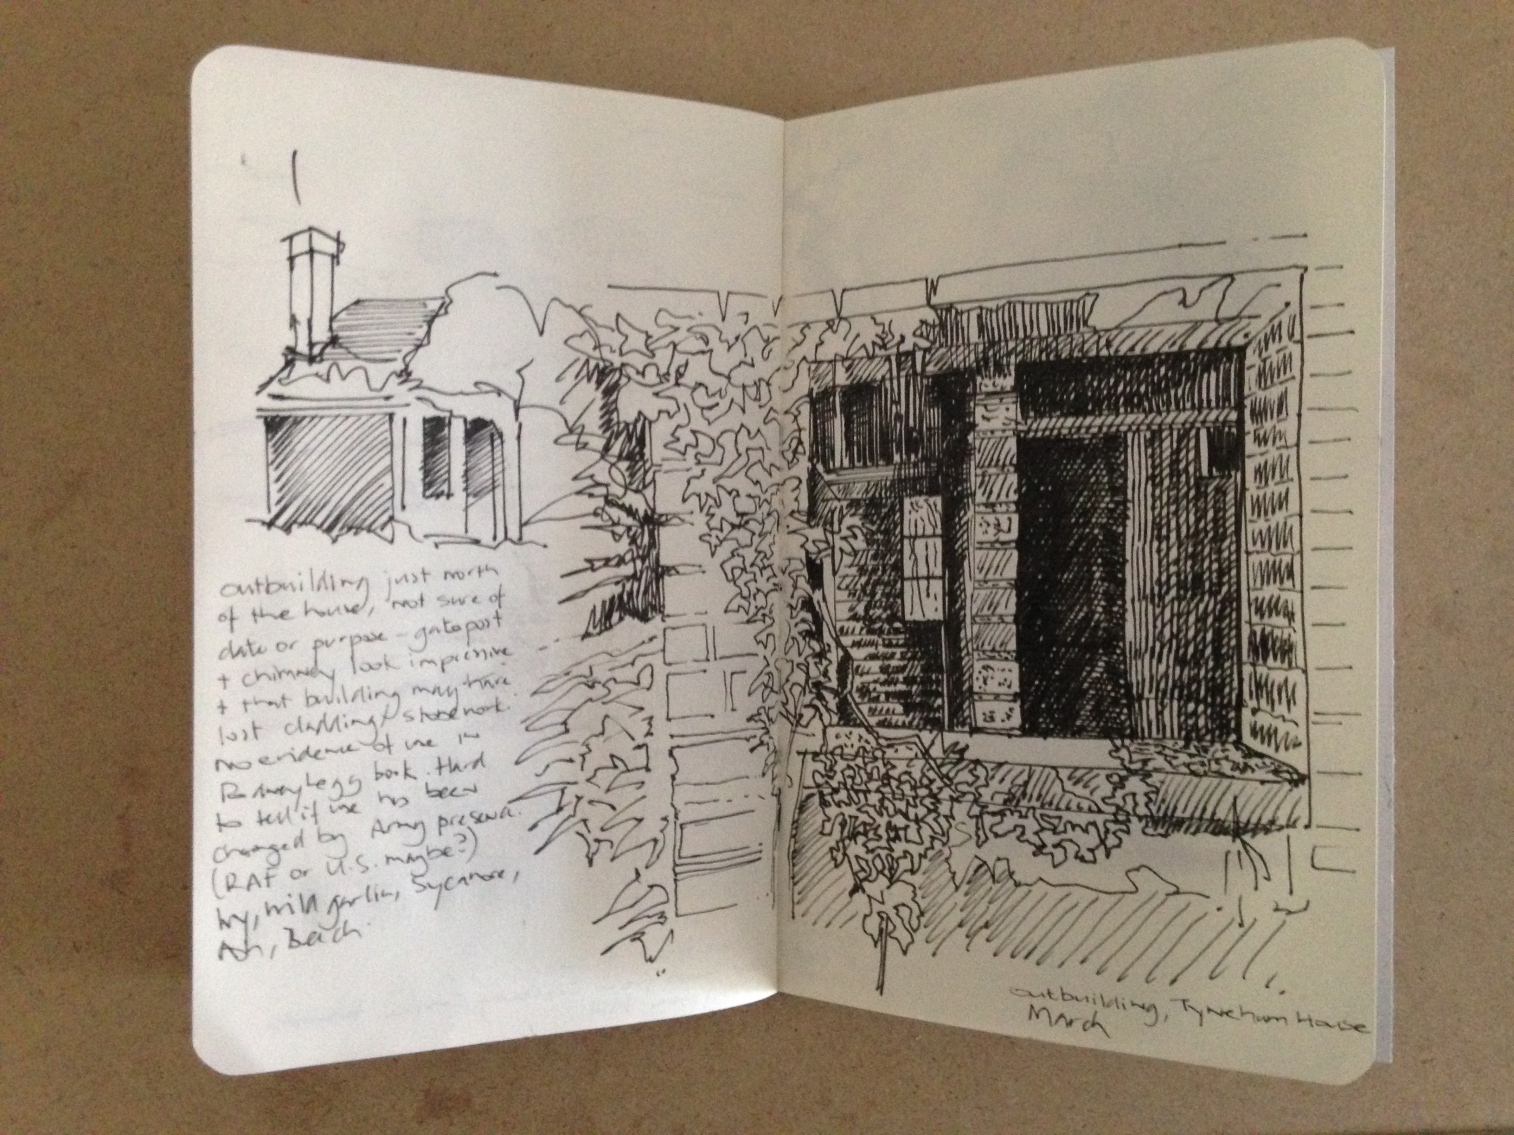 outbuilding just north
of the house, not sure of
date or purpose – gatepost
+ chimney look impressive
+ that building may have
lost cladding/stonework.
no evidence of use in
Rodney Legg book. Hard
to tell if use has been
changed by Army presence.
(RAF or U.S. maybe?)
Ivy, wild garlic, Sycamore,
Ash, Beech.
outbuilding, Tyneham House
March